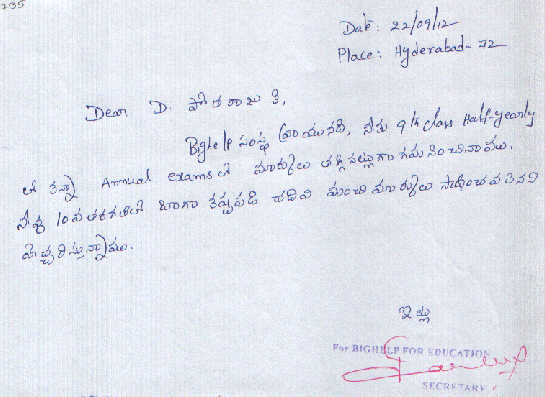 235
Date: 22/09/12
Place: Hyderabad-72
Dear D. పోతరాజు కి,
Bighelp సంస్థ వ్రాయునది, నీకు 9th class Half-yearly
లో కన్నా Annual exams లో మార్కులు తగ్గినట్లుగా గమనించినాము.
నీవు 10వ తరగతిలో బాగా కష్టపడి చదివి మంచి మార్కులు సాధించవలెనని
హెచ్చరిస్తున్నాము.
ఇట్లు
For BIGHELP FOR EDUCATION
SECRETARY